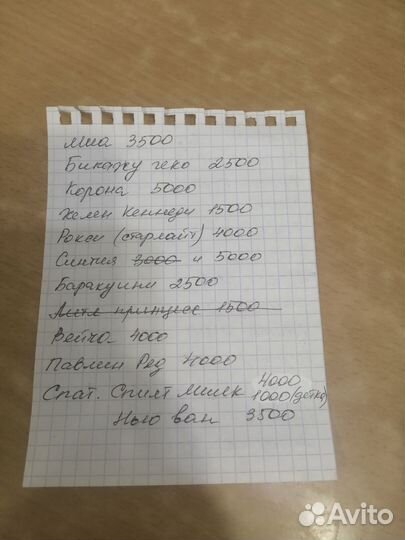 Миа 3500
Бикажу геко 2500
Корона 5000
Хелен Кеннеди 1500
Рокси (старлайт) 4000
Синтия 3000 и 5000
Баракуини 2500
Литл принцесс 1500
Вейча 4000
Павлин Ред 4000
Спат. Спилт Милк 4000
1000 (детка)
Нью ван 3500
Avito